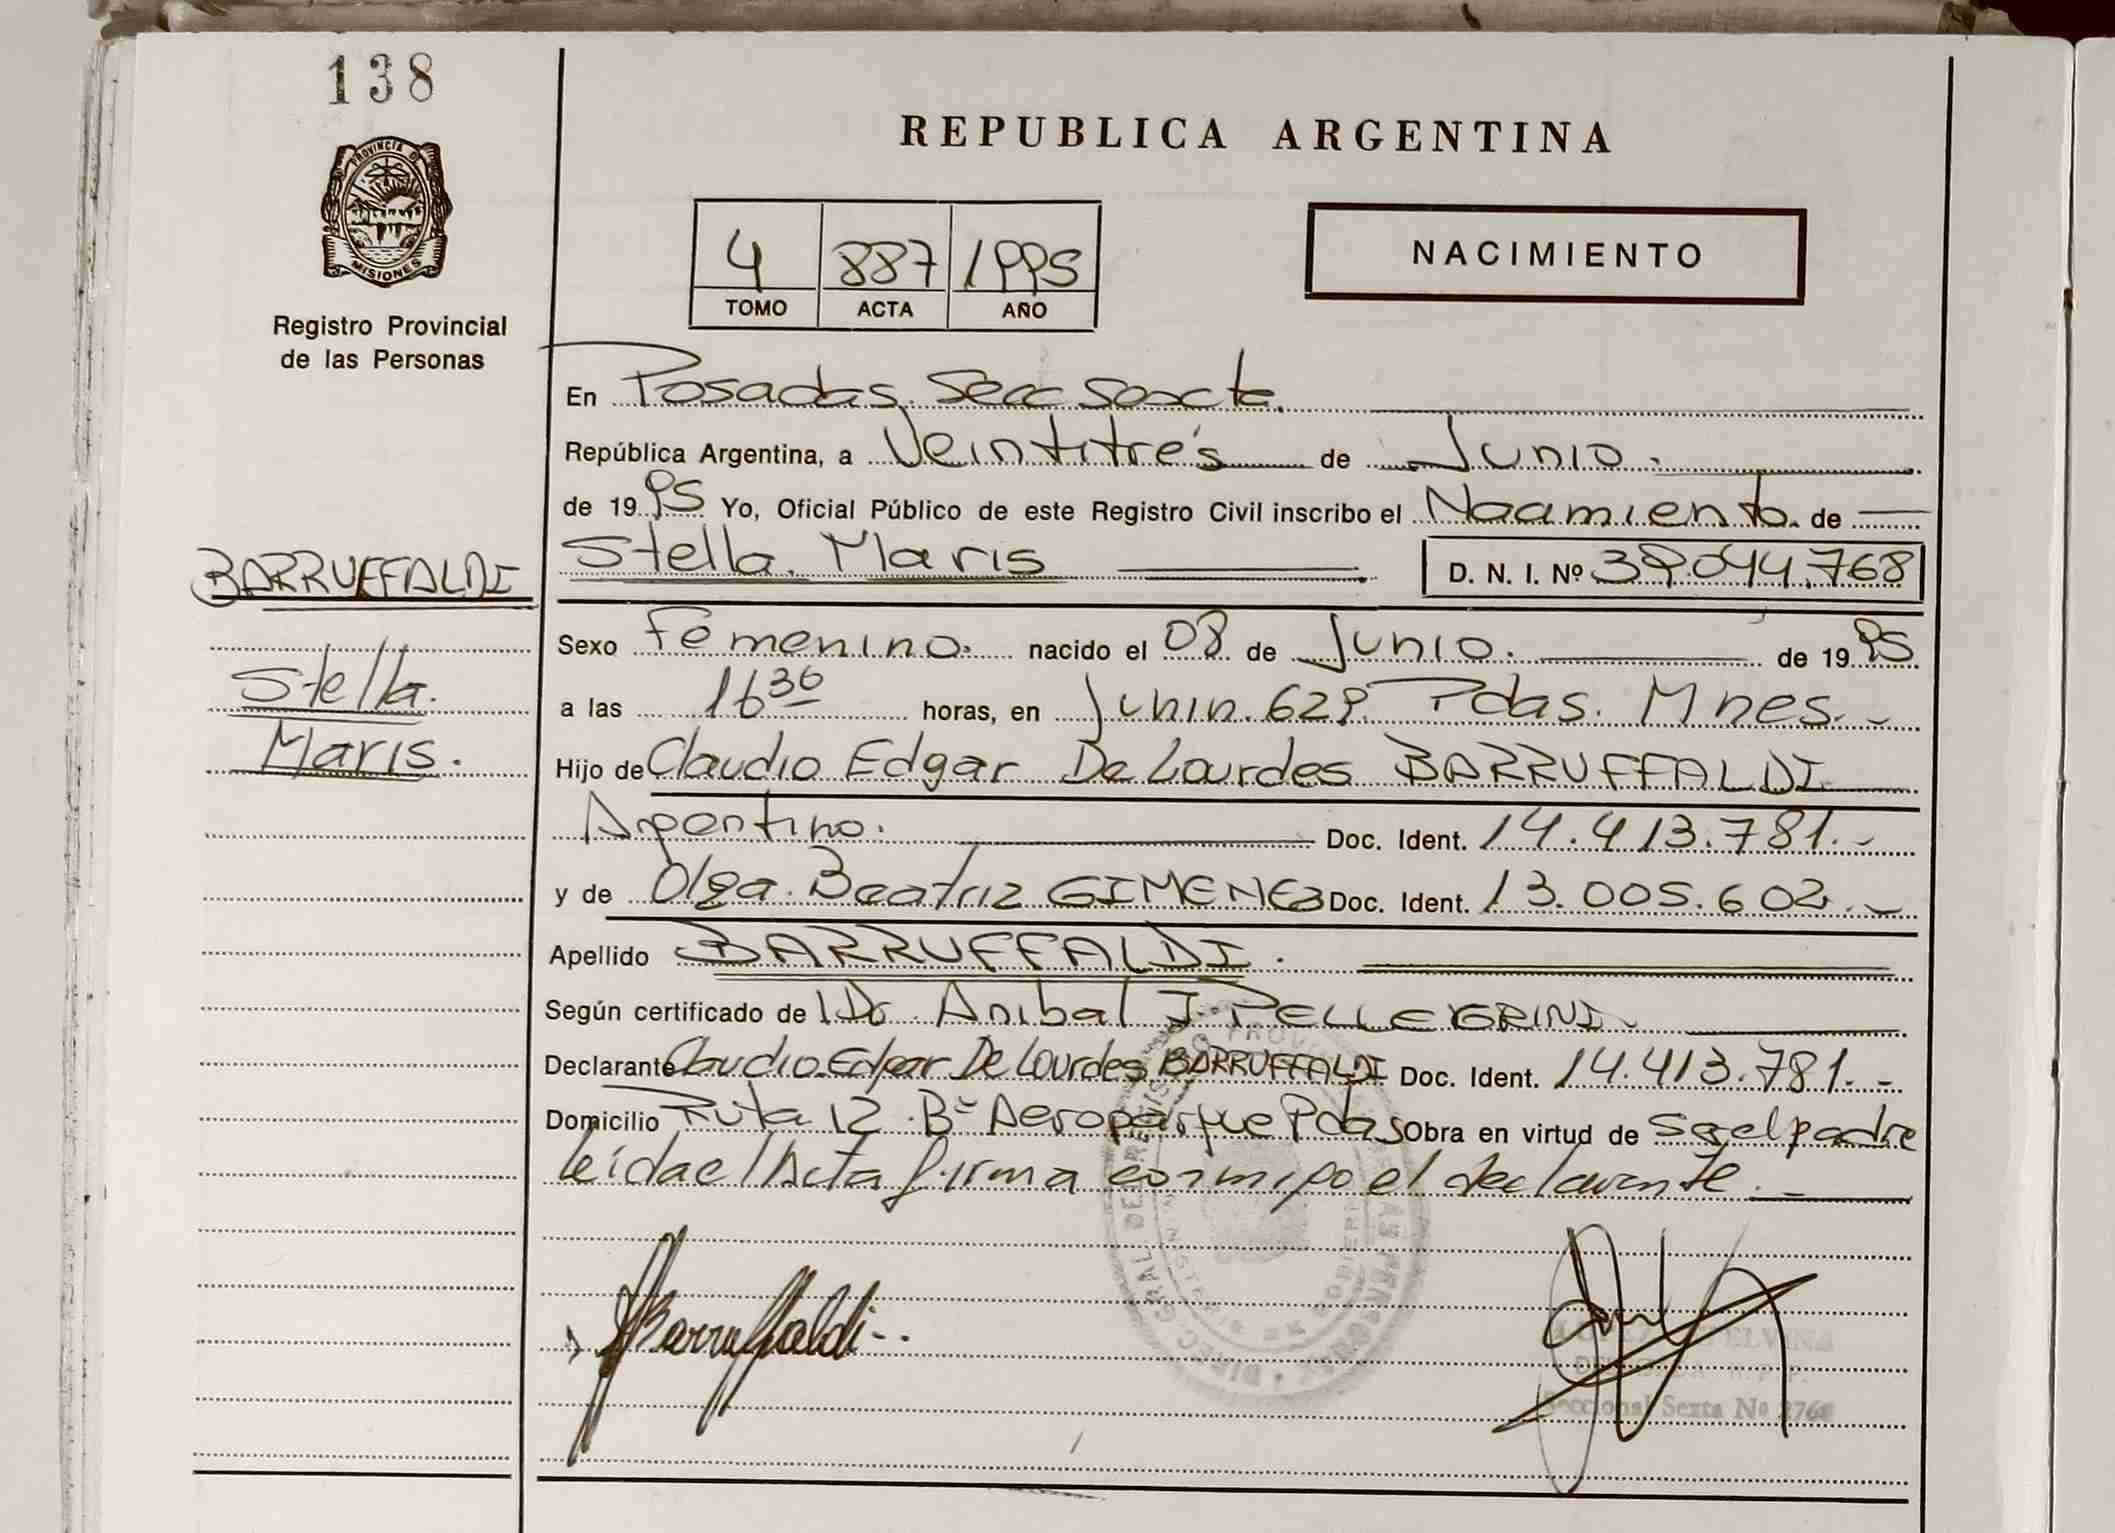 138
PROVINCIA DE
MISIONES
Registro Provincial
de las Personas
REPUBLICA ARGENTINA
4 887 1995
TOMO ACTA AÑO
NACIMIENTO
En Posadas. Secc Sexta.
República Argentina, a Veintitrés de Junio.
de 1995 Yo, Oficial Público de este Registro Civil inscribo el Nacimiento. de
BARRUFFALDI
Stella. Maris
Stella. Maris D. N. I. Nº 39.044.768
Sexo Femenino. nacido el 08 de Junio. de 1995
a las 16 30 horas, en Junin. 629. Pdas. Mnes.
Hijo de Claudio Edgar De Lourdes BARRUFFALDI
Argentino. Doc. Ident. 14.413.781.-
y de Olga. Beatriz GIMENEZ Doc. Ident. 13.005.602.-
Apellido BARRUFFALDI.
Según certificado de Dr. Anibal J. PELLEGRINI
Declarante Claudio Edgar De Lourdes BARRUFFALDI Doc. Ident. 14.413.781.-
Domicilio Ruta 12. Bº Aeroparque Pdas Obra en virtud de ser el padre
leída el Acta firma conmigo el declarante.-
Barruffaldi
DIREC. GRAL DE REGISTRO PROVINCIAL DE LAS PERSONAS
Seccional Sexta Nº